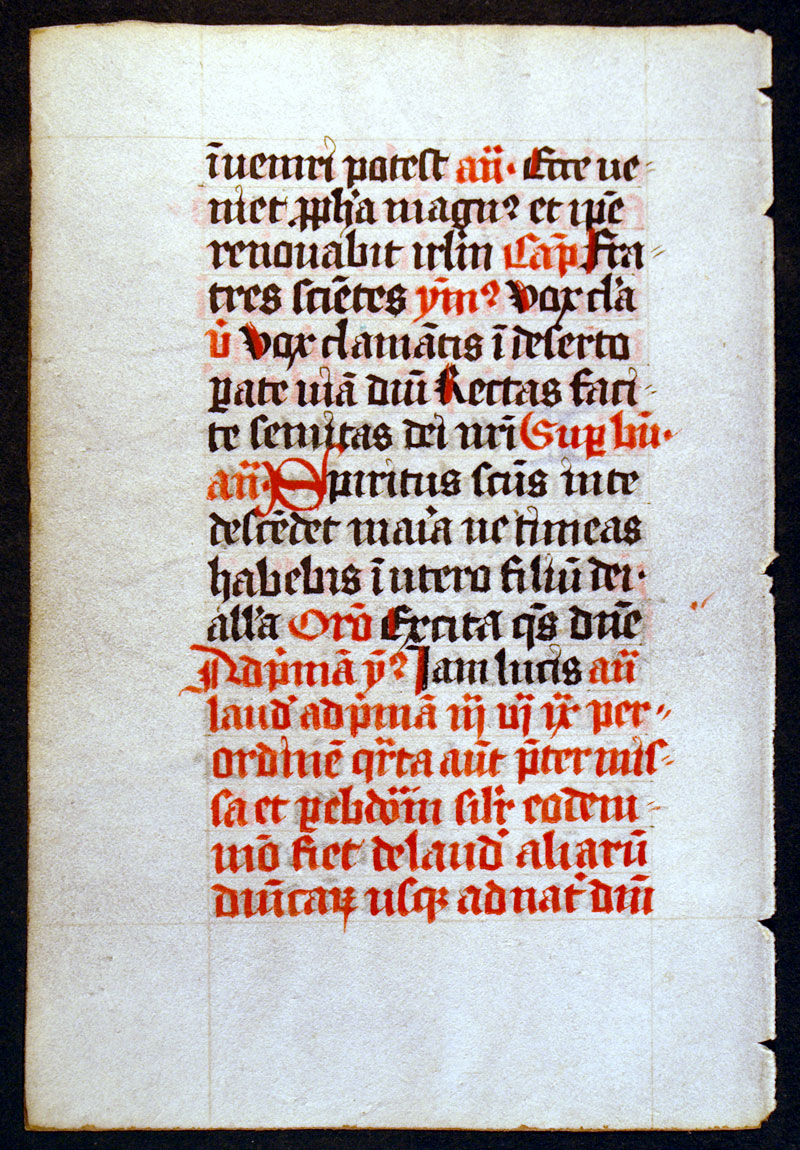 īuenīri potest an̄· Ecce ue=
niet ꝓpha magnꝰ et ip̄e
renouabit irl̄m Cap̄ Fra=
tres sciētes ym̄ꝰ Vox cl'a
v̄ Vox clamātis ī deserto
ꝑate uiā dn̄i Rectas faci=
te semitas dei nr̄i Suꝑ bn̄·
an̄· Spiritus sc̄us in te
descēdet maīa ne timeas
habebis ī utero filiū dei·
all'a Or̄o Excita q̄s dn̄e
Ad p̄mā yꝰ Iam lucis an̄
laud' ad p̄mā iij vj ix per=
ordinē q̄rta aūt p̄termis=
sa et ꝑ ebdōm sil'r eodem=
mō fiet de laud' aliarū
dn̄icaꝝ usqꝫ ad nat' dn̄i